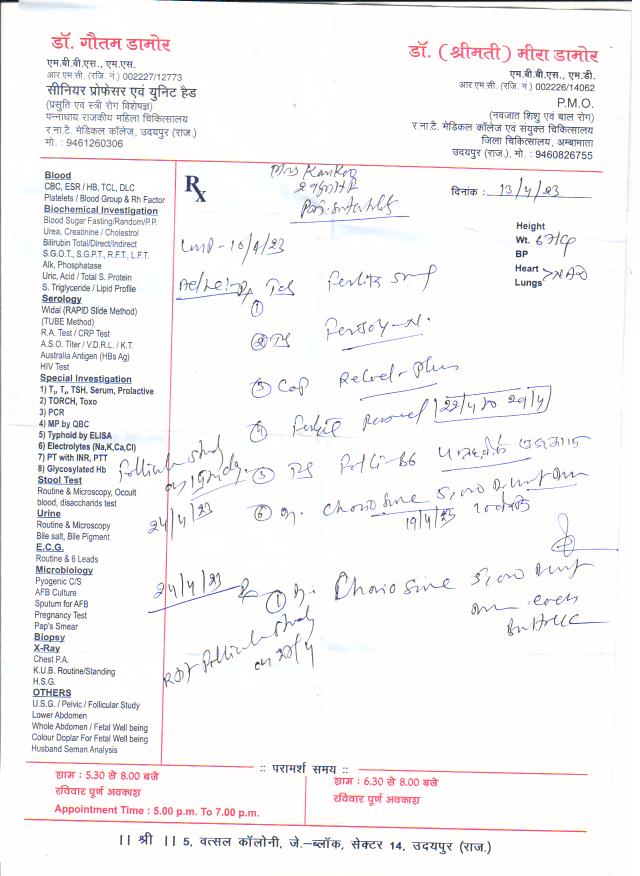 डॉ. गौतम डामोर
एम.बी.बी.एस., एम.एस.
आर.एम.सी. (रजि. नं.) 002227/12773
सीनियर प्रोफेसर एवं युनिट हैड
(प्रसुति एवं स्त्री रोग विशेषज्ञ)
पन्नाधाय राजकीय महिला चिकित्सालय
र.ना.टै. मेडिकल कॉलेज, उदयपुर (राज.)
मो. : 9461260306
डॉ. (श्रीमती) मीरा डामोर
एम.बी.बी.एस., एम.डी.
आर.एम.सी. (रजि. नं.) 002226/14062
P.M.O.
(नवजात शिशु एवं बाल रोग)
र.ना.टै. मेडिकल कॉलेज एवं संयुक्त चिकित्सालय
जिला चिकित्सालय, अम्बामाता
उदयपुर (राज.), मो. : 9460826755
Blood
CBC, ESR / HB, TCL, DLC
Platelets / Blood Group & Rh Factor
Biochemical Investigation
Blood Sugar Fasting/Random/P.P.
Urea, Creatinine / Cholestrol
Bilirubin Total/Direct/Indirect
S.G.O.T., S.G.P.T., R.F.T., L.F.T.
Alk, Phosphatase
Uric, Acid / Total S. Protein
S. Triglyceride / Lipid Profile
Serology
Widal (RAPID Slide Method)
(TUBE Method)
R.A. Test / CRP Test
A.S.O. Titer / V.D.R.L. / K.T.
Australia Antigen (HBs Ag)
HIV Test
Special Investigation
1) T₃, T₄, TSH, Serum, Prolactive
2) TORCH, Toxo
3) PCR
4) MP by QBC
5) Typhoid by ELISA
6) Electrolytes (Na,K,Ca,Cl)
7) PT with INR, PTT
8) Glycosylated Hb
Stool Test
Routine & Microscopy, Occult
blood, disaccharids test
Urine
Routine & Microscopy
Bile salt, Bile Pigment
E.C.G.
Routine & 6 Leads
Microbiology
Pyogenic C/S
AFB Culture
Sputum for AFB
Pregnancy Test
Pap's Smear
Biopsy
X-Ray
Chest P.A.
K.U.B. Routine/Standing
H.S.G.
OTHERS
U.S.G. / Pelvic / Follicular Study
Lower Abdomen
Whole Abdomen / Fetal Well being
Colour Doplar For Fetal Well being
Husband Seman Analysis
Rx
Mrs
दिनांक : 13/4/23
Height
Wt. 67
BP
Heart
Lungs > NAD
LMP - 10/4/23
①
②
③ Cap Plus
④ 22/4 to 29/4
⑤
Follicular study
on
24/4/23
⑥ 5,000
19/4/23
24/4/23
① 5,000
Follicular study
on
:: परामर्श समय ::
शाम : 5.30 से 8.00 बजे
रविवार पूर्ण अवकाश
Appointment Time : 5.00 p.m. To 7.00 p.m.
शाम : 6.30 से 8.00 बजे
रविवार पूर्ण अवकाश
|| श्री || 5, वत्सल कॉलोनी, जे.–ब्लॉक, सेक्टर 14, उदयपुर (राज.)